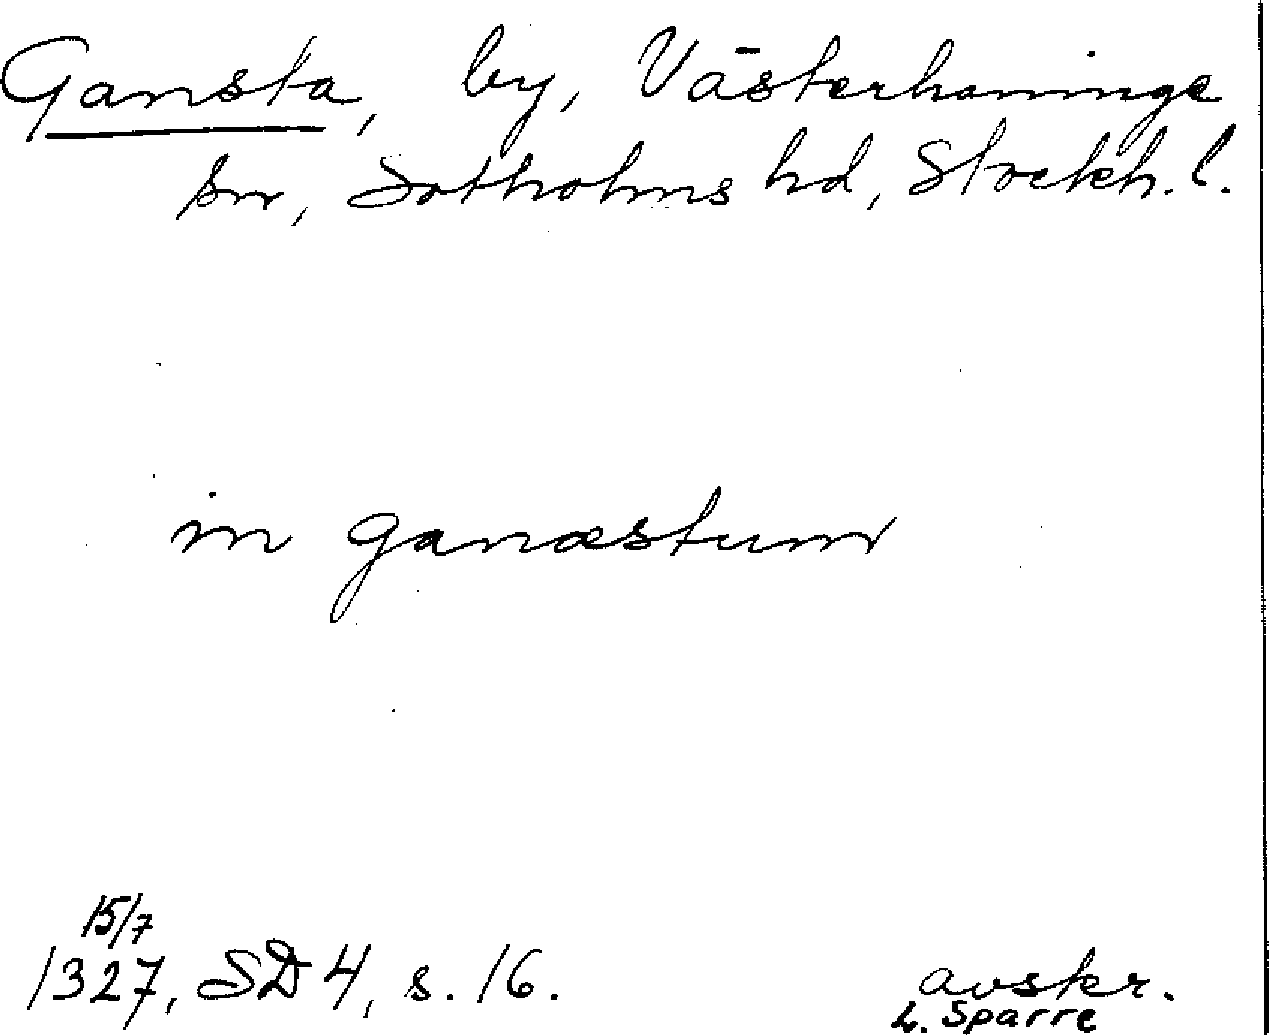 Gansta, by, Västerhaninge
sn, Sotholms hd, Stockh. l.
in ganæstum
15/7
1327, SD 4, s. 16.
avskr.
L. Sparre